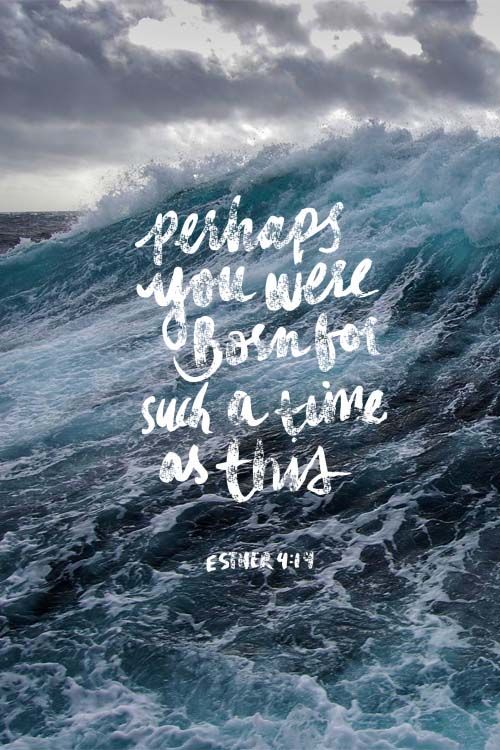 perhaps
you were
Born for
such a time
as this
ESTHER 4:14